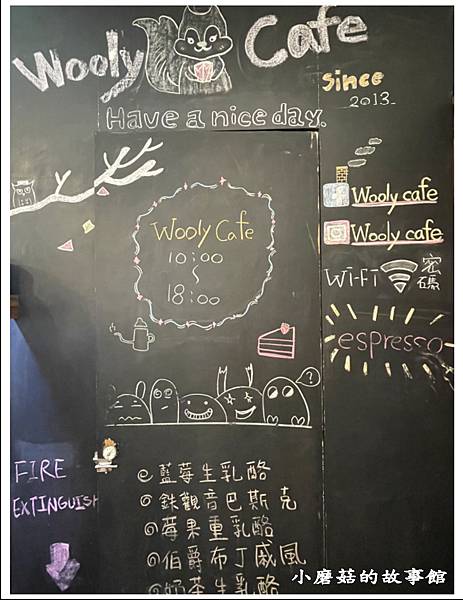 Wooly Cafe
since
2013
Have a nice day.
Wooly Cafe
10:00
~
18:00
Wooly cafe
Wooly cafe
Wi-Fi 密碼
espresso
?
FIRE
EXTINGUISH
藍莓生乳酪
鉄觀音巴斯克
莓果重乳酪
伯爵布丁戚風
奶茶生乳酪
小磨菇的故事館